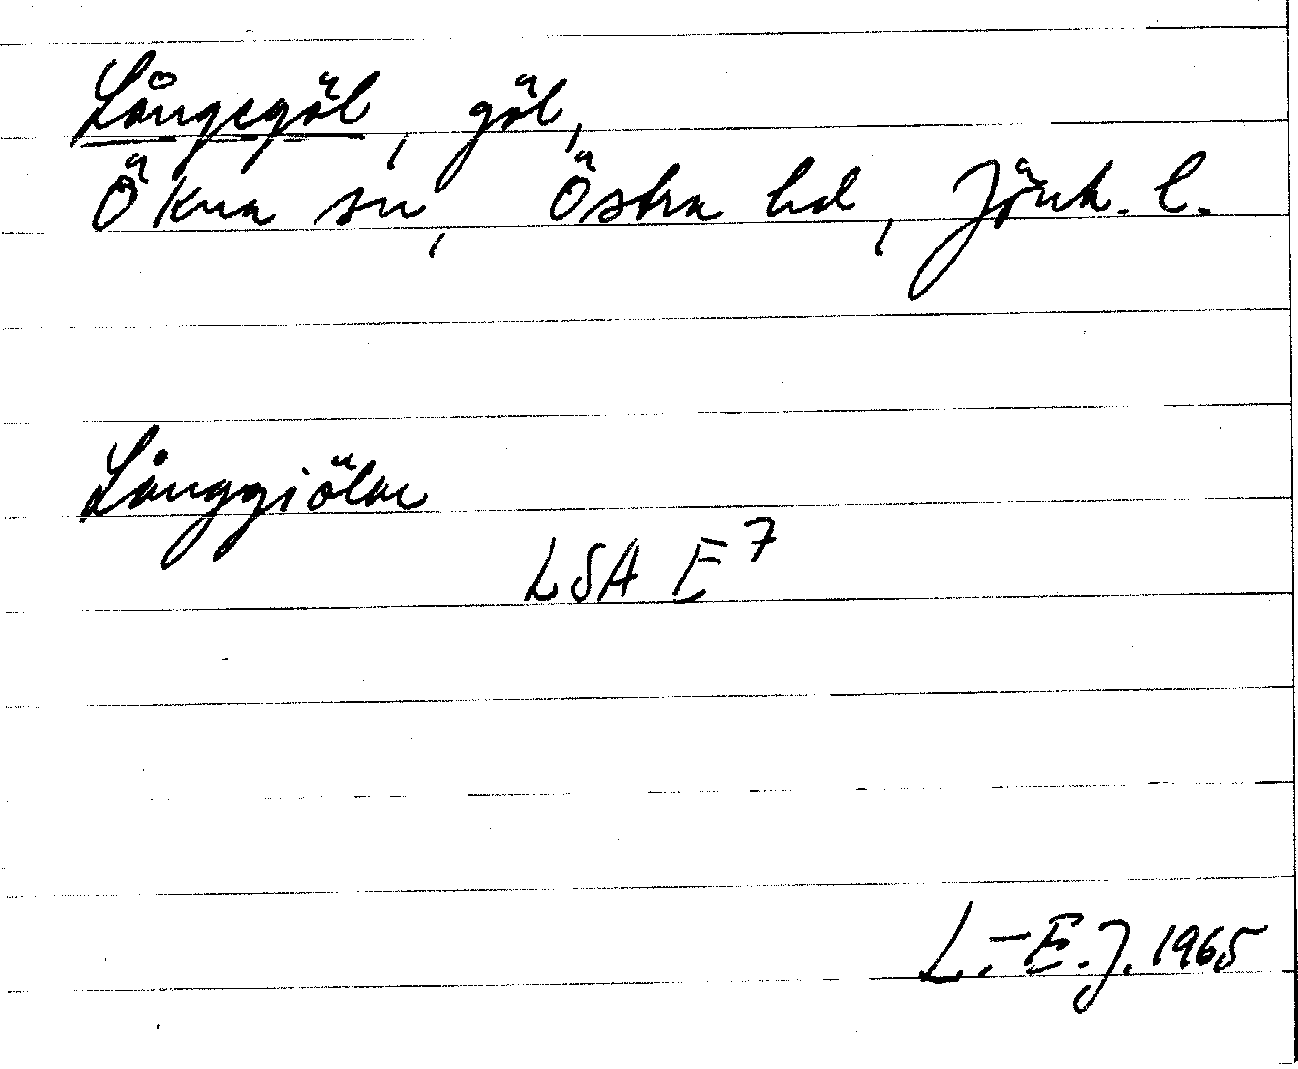 Långegöl, göl,
Ökna sn, Östra hd, Jönk. l.
Långgiölen
LSA E7
L.-E.J. 1965